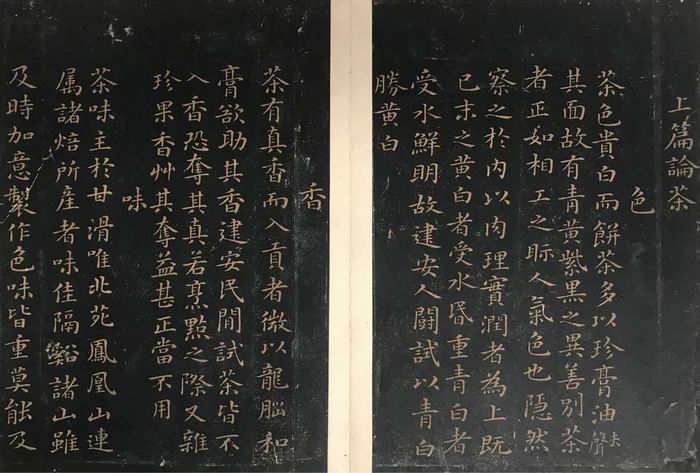 上篇論茶
色
茶色貴白而餅茶多以珍膏油去聲
其面故有青黃紫黑之異善別茶
者正如相工之眎人氣色也隱然
察之於內以肉理實潤者為上既
已末之黃白者受水昬重青白者
受水鮮明故建安人鬪試以青白
勝黃白
香
茶有真香而入貢者微以龍腦和
膏欲助其香建安民間試茶皆不
入香恐奪其真若烹點之際又雜
珍果香艸其奪益甚正當不用
味
茶味主於甘滑唯北苑鳳凰山連
属諸焙所產者味佳隔谿諸山雖
及時加意製作色味皆重莫能及